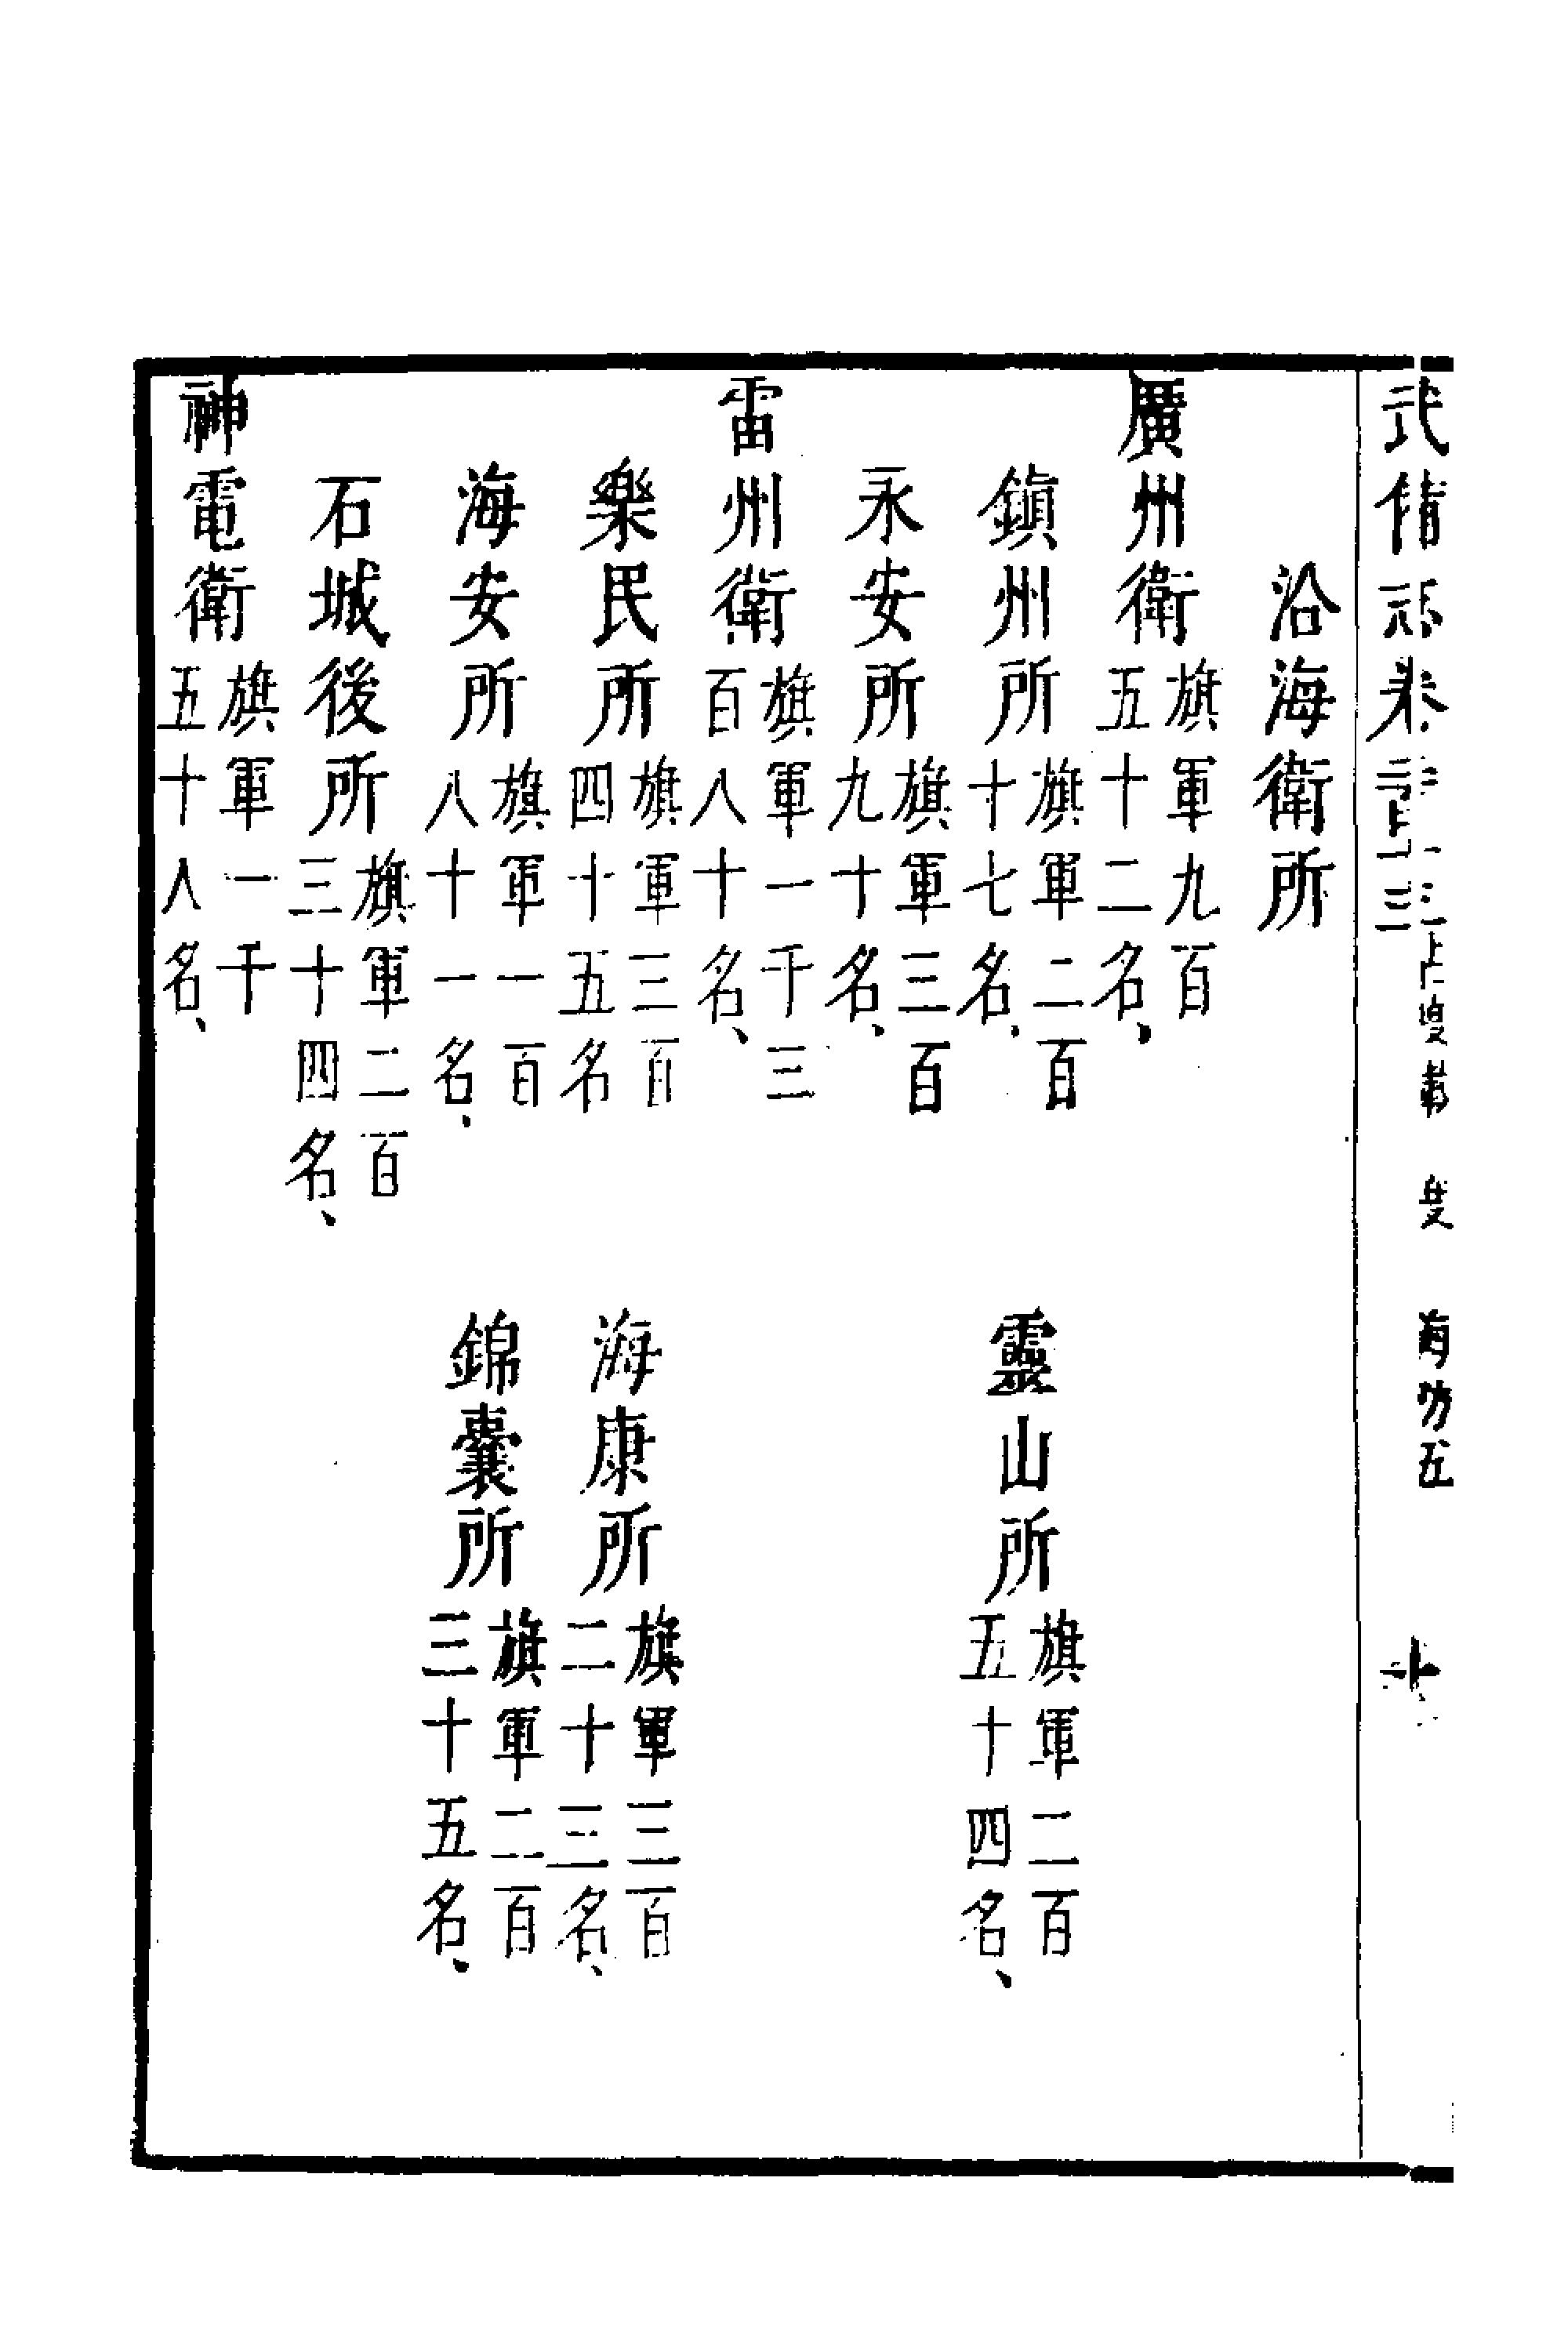 武備志卷二百十三 占度載 度 海防五
沿海衛所
廣州衛旗軍九百五十二名、
鎮州所旗軍二百十七名、 靈山所旗軍二百五十四名、
永安所旗軍三百九十名、
雷州衛旗軍一千三百八十名、
樂民所旗軍三百四十五名 海康所旗軍三百二十三名、
海安所旗軍一百八十一名、 錦囊所旗軍二百三十五名、
石城後所旗軍二百三十四名、
神電衛旗軍一千五十八名、